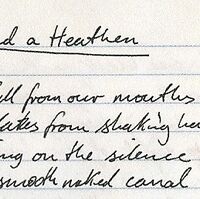 d a Heathen
ll from our mouths
lates from shaking ha
ng on the silence
smooth naked canal